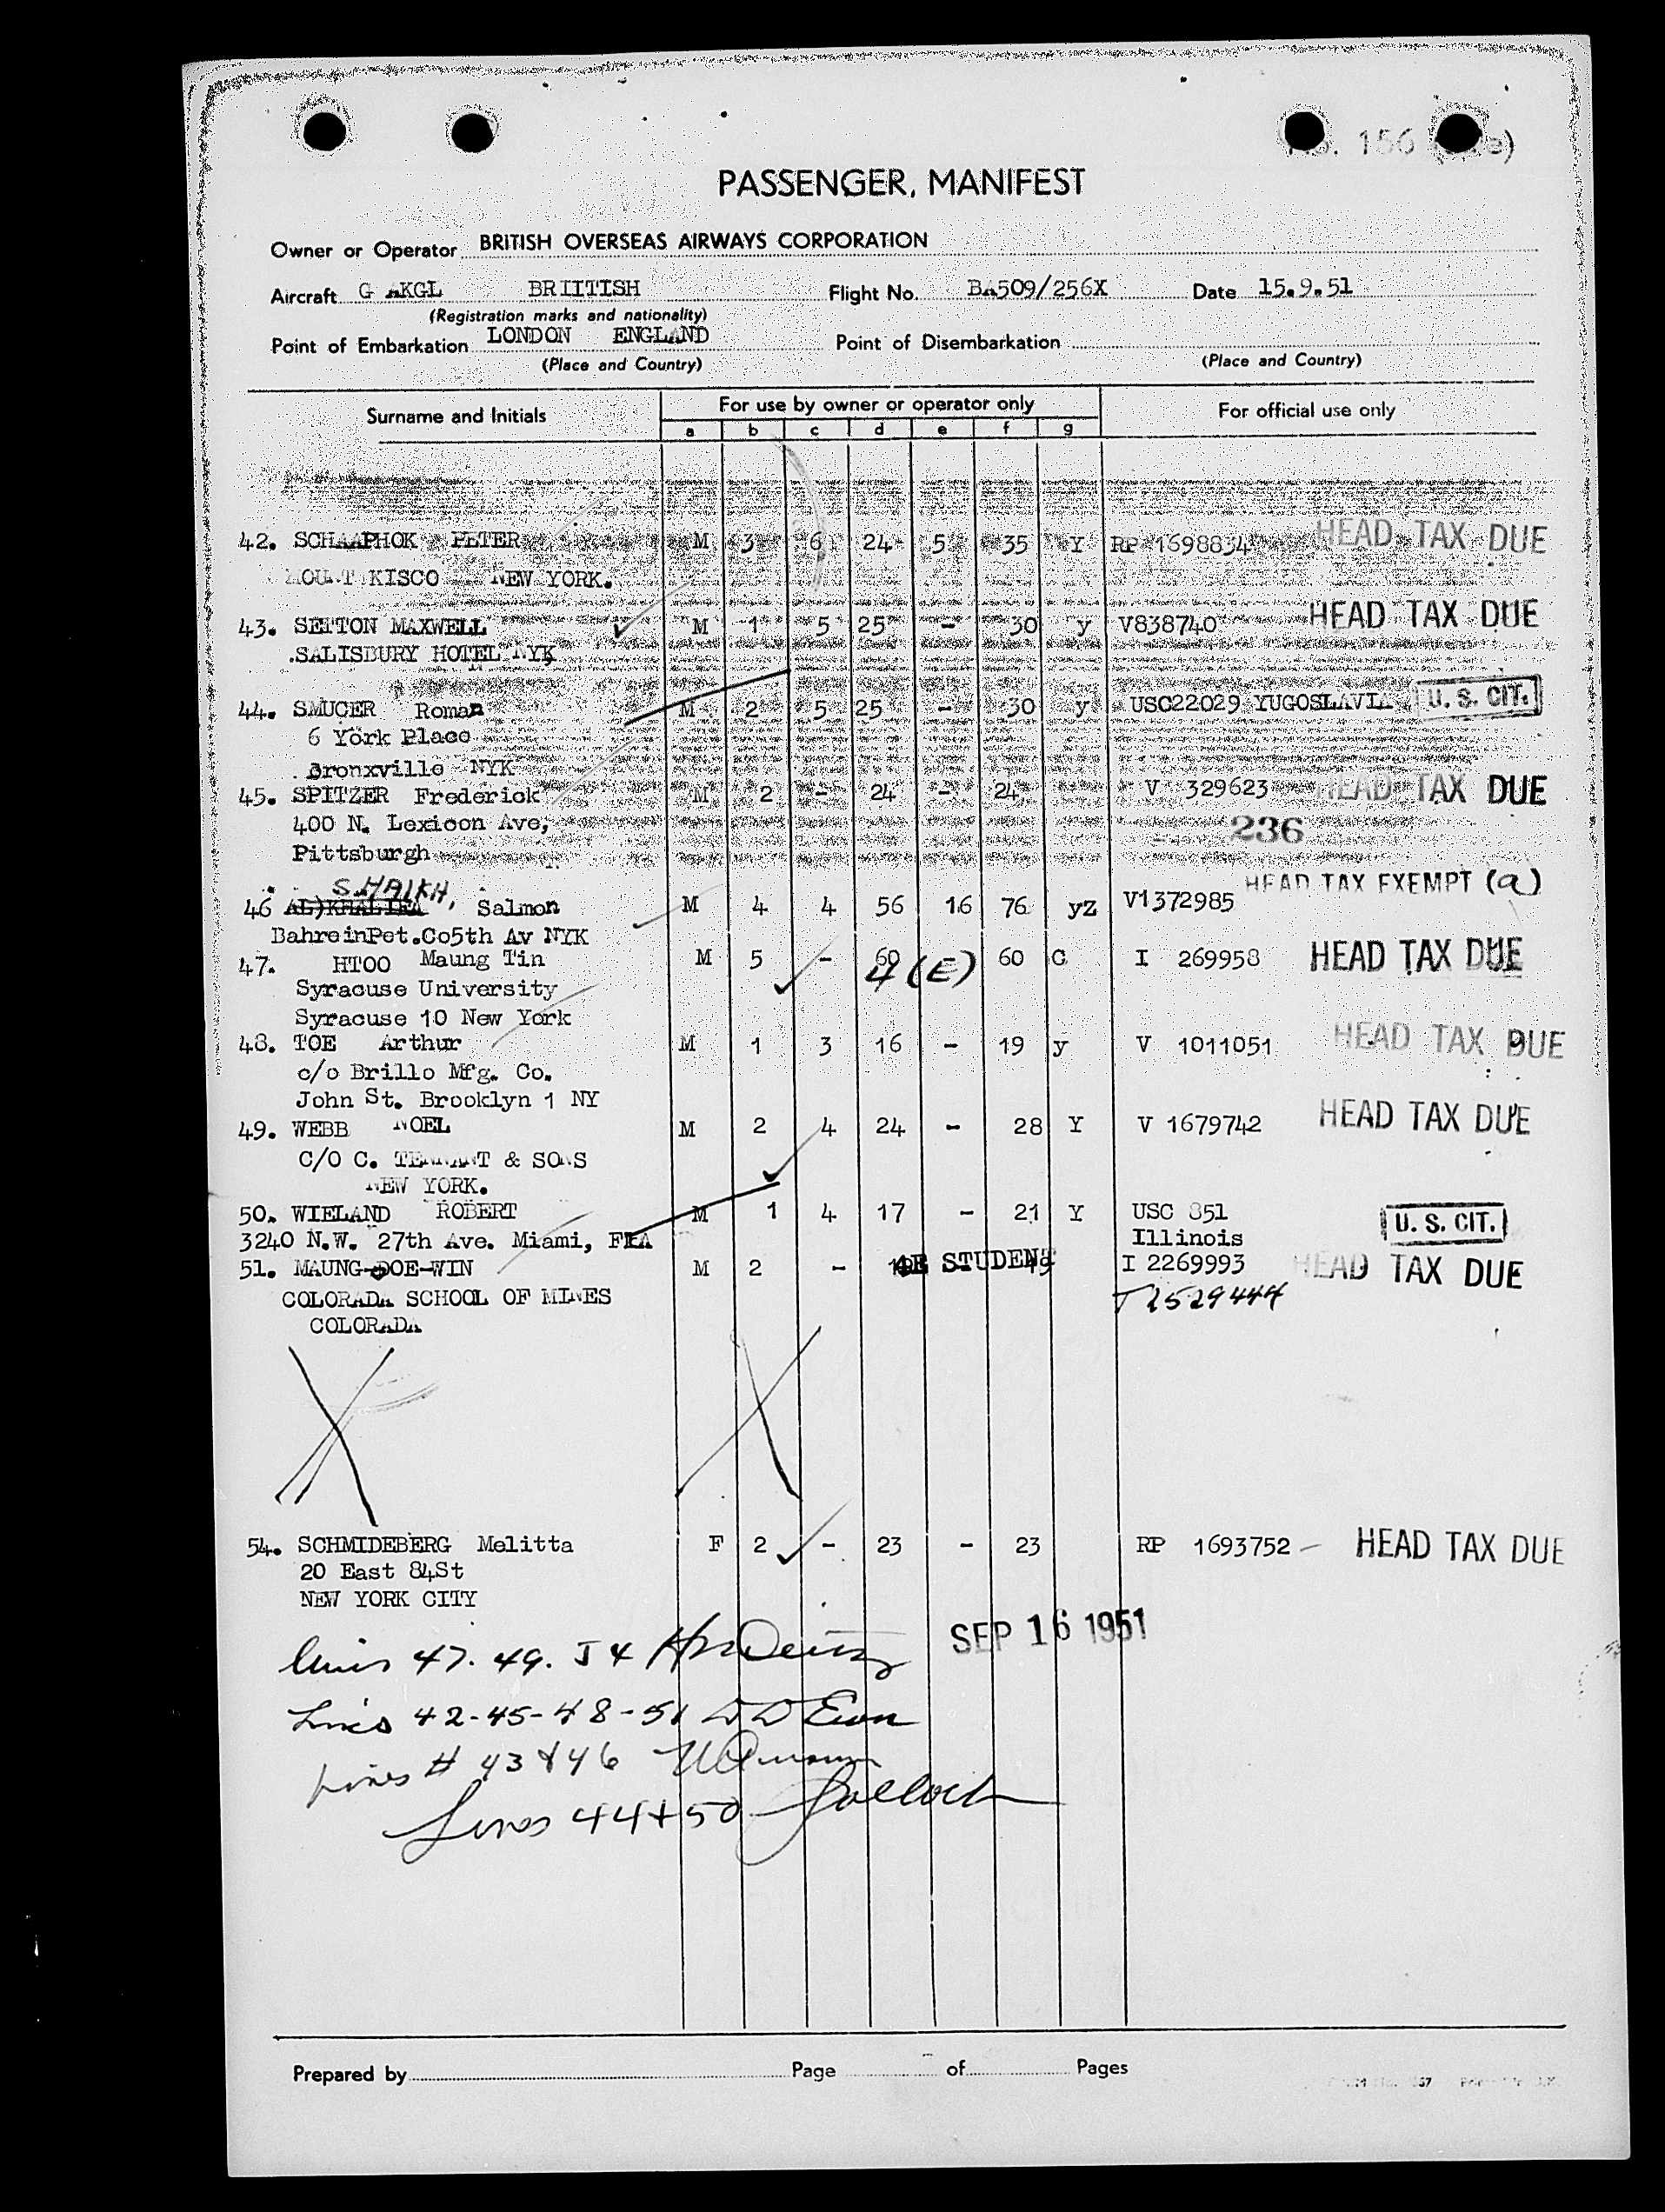 156
PASSENGER MANIFEST
Owner or Operator BRITISH OVERSEAS AIRWAYS CORPORATION
Aircraft G AKGL BRIITISH Flight No. BA509/256X Date 15.9.51
(Registration marks and nationality)
Point of Embarkation LONDON ENGLAND Point of Disembarkation
(Place and Country) (Place and Country)
Surname and Initials For use by owner or operator only For official use only
a b c d e f g
42. SCHAAPHOK PETER M 3 6 24 5 35 Y RP 1698834 HEAD TAX DUE
MOUNT KISCO NEW YORK.
43. SETTON MAXWELL M 1 5 25 - 30 y V838740 HEAD TAX DUE
SALISBURY HOTEL NYK
44. SMUCER Roman M 2 5 25 - 30 y USC22029 YUGOSLAVIA U. S. CIT.
6 York Place
Bronxville NYK
45. SPITZER Frederick M 2 - 24 - 24 V 329623 HEAD TAX DUE
400 N. Lexicon Ave, 236
Pittsburgh
SHAIKH, HEAD TAX EXEMPT (a)
46 AL)KHALIFA Salmon M 4 4 56 16 76 yz V1372985
BahreinPet.Co5th Av NYK
47. HTOO Maung Tin M 5 - 60 60 G I 269958 HEAD TAX DUE
4(E)
Syracuse University
Syracuse 10 New York
48. TOE Arthur M 1 3 16 - 19 y V 1011051 HEAD TAX DUE
c/o Brillo Mfg. Co.
John St. Brooklyn 1 NY
49. WEBB NOEL M 2 4 24 - 28 Y V 1679742 HEAD TAX DUE
C/O C. TENNANT & SONS
NEW YORK.
50. WIELAND ROBERT M 1 4 17 - 21 Y USC 851 U. S. CIT.
3240 N.W. 27th Ave. Miami, FLA Illinois
51. MAUNG-DOE-WIN M 2 - 19 4E STUDENT 19 I 2269993 HEAD TAX DUE
COLORADA SCHOOL OF MINES
COLORADA
54. SCHMIDEBERG Melitta F 2 - 23 - 23 RP 1693752 - HEAD TAX DUE
20 East 84St
NEW YORK CITY
SEP 16 1951
Lines 47. 49. 54
Lines 42-45-48-51
Lines # 43 & 46
Lines 44+50
Prepared by Page of Pages